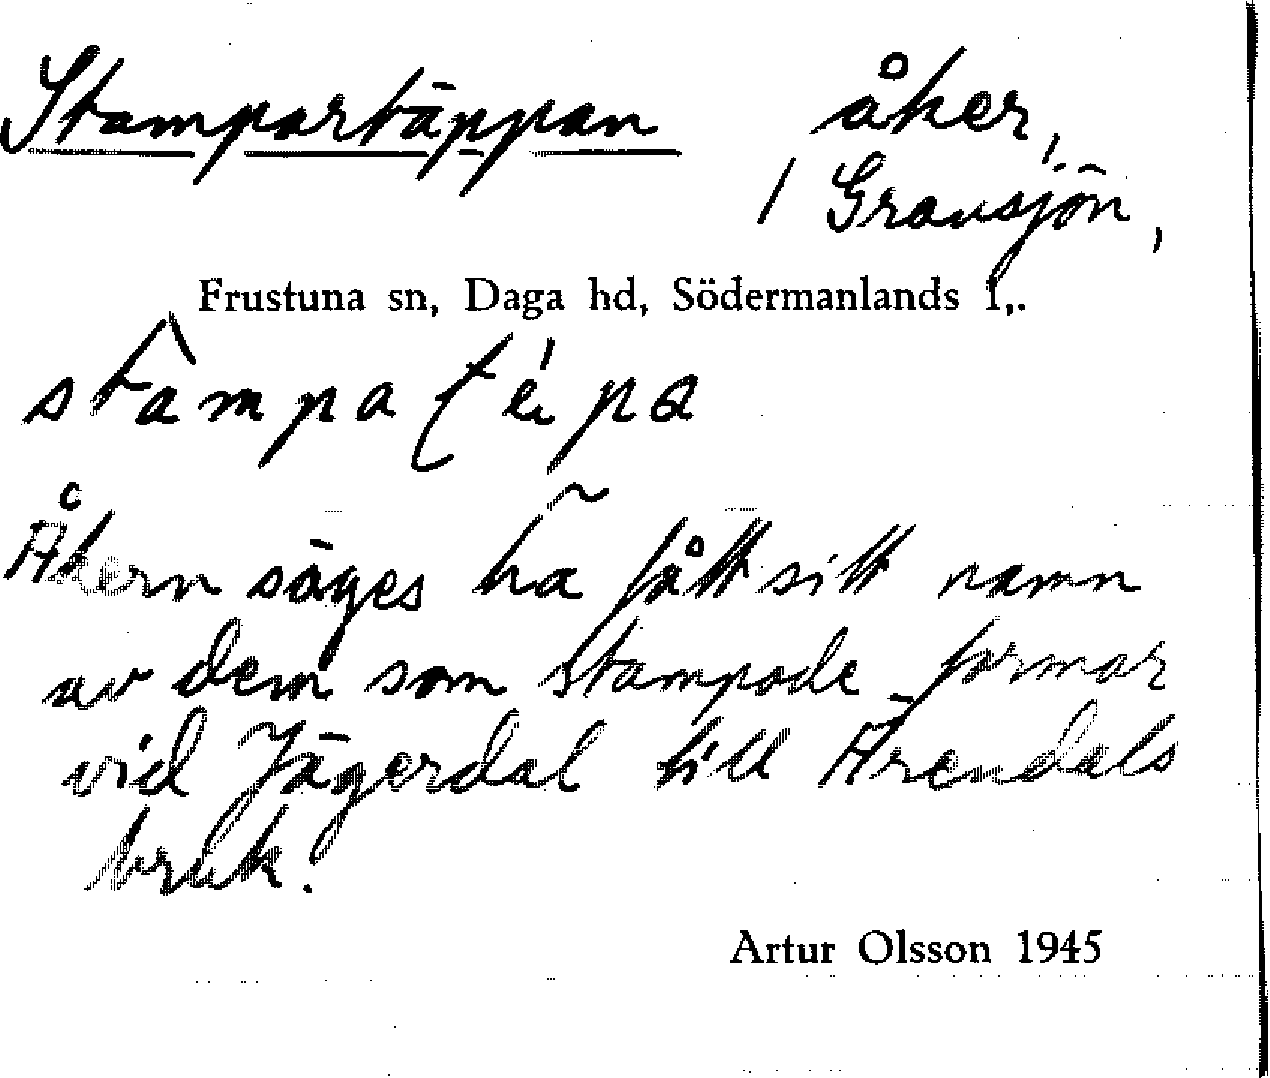 Stampartäppan åker,
/ Gravsjön,
Frustuna sn, Daga hd, Södermanlands l,.
stàmpatépa
Åkern säges ha fått sitt namn
av dem som stampade formar
vid Jägerdal till Ärendals
bruk.
Artur Olsson 1945